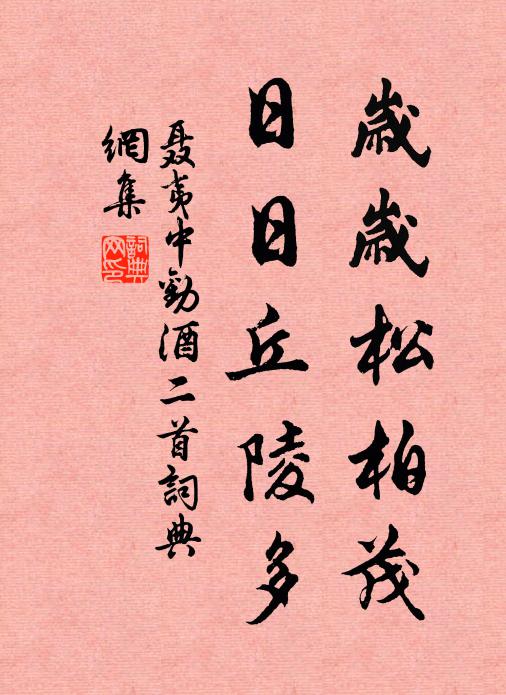 歲歲松柏茂
日日丘陵多
聶夷中勸酒二首詞典
網集
詞典
网印